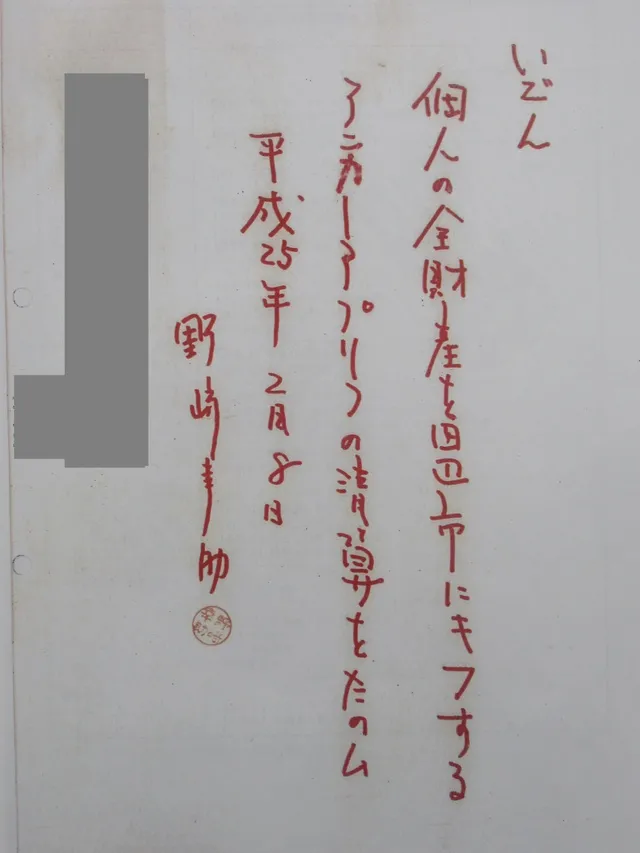 いごん
個人の全財産を田辺市にキフする
アンカーアプリコの清算をたのム
平成25年2月8日
野崎幸助
野崎幸助